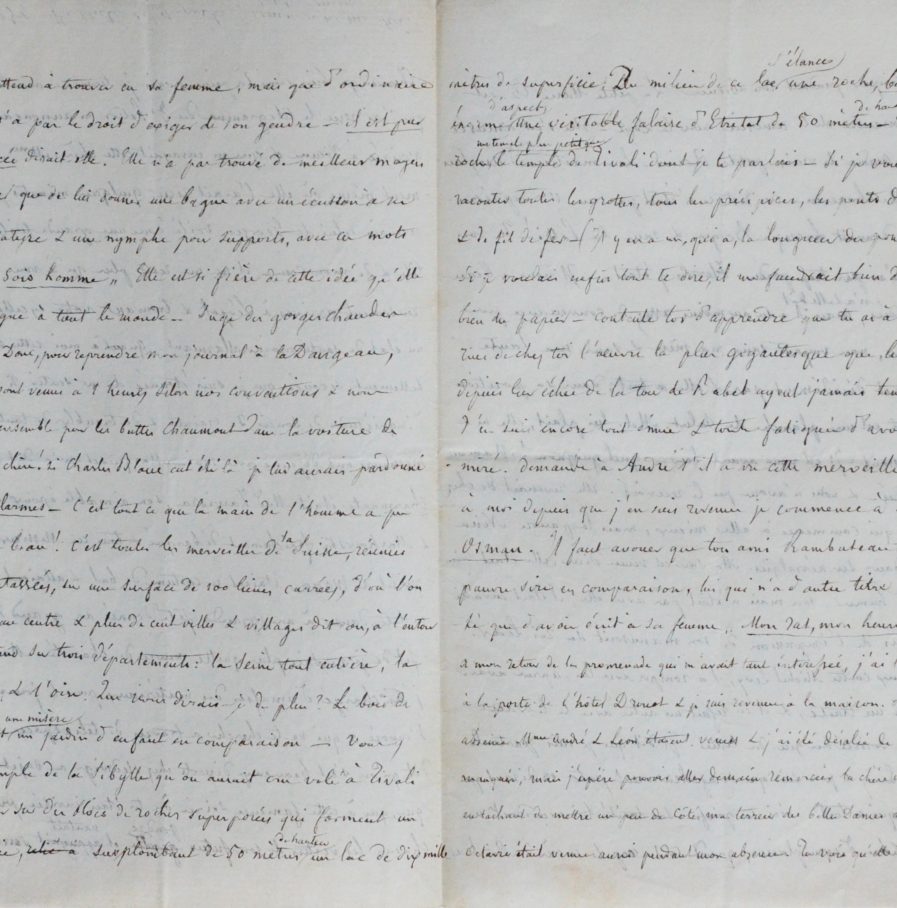 ttend à trouver en sa femme, mais que d'ordinaire
n'a pas le droit d'exiger de son gendre il est puc
cée disait elle. Elle n'a pas trouvé de meilleur moyen
que de lui donner une bague avec un écusson à
satyre & une nymphe pour supports, avec ces mots
Sois homme„ Elle est si fière de cette idée qu'elle
à tout le monde — Juge des gorges chaudes
Donc, pour reprendre mon journal à la Dangeau,
sont venus à 1 heure, selon nos conventions & nous
ensemble par les buttes Chaumont dans la voiture de
chère! si Charles Blanc eut été là je lui aurais pardonné
larmes — C'est tout ce que la main de l'homme a pu
beau! C'est toutes les merveilles de la Suisse, réunies
tassées, sur une surface de 100 lieues carrées, d'où l'on
au centre & plus de cent villes & villages dit on, à l'entour
sur trois départements: la Seine tout entière, la
& l'Oise. Que vous dirais-je de plus? Le bois de
une misère
un jardin d'enfant en comparaison — Vous y
temple de la Sibylle qu'on aurait cru volé à Tivoli
sur des blocs de rocher superposés qui forment un
de hauteur
surplombant de 50 mètres un lac de dix mille
s'élance
mètres de superficie; Du milieu de ce lac, une roche,
d'aspect, de haut
énorme. Une véritable falaise d'Etretat de 50 mètres —
roche le temple de Tivoli dont je te parlais — Si je vou
raconter toutes les grottes, tous les précipices, les ponts d
& de fil de fer — (Il y en a un, qui a, la longueur du pon
Si je voulais enfin tout te dire, il me faudrait bien d
bien du papier — contente toi d'apprendre que tu as à
rues de chez toi l'œuvre la plus gigantesque que, le
depuis l'échec de la tour de Babel ayent jamais ten
J'en suis encore tout émue & toute fatiguée d'avo
miré. Demande à André s'il a vu cette merveille
à moi depuis que j'en suis revenue je commence à
Osman. Il faut avouer que ton ami Rambuteau
pauvre sire en comparaison, lui qui n'a d'autre titre
té que d'avoir écrit à sa femme „Mon rat, mon heur
à mon retour de la promenade qui m'avait tant intéressée, j'ai
à la porte de l'hôtel Drouot & je suis revenue à la maison.
absence Mme André & Léon étaient venus & j'ai été désolée de
manquer, mais j'espère pouvoir aller demain remercier la chère
en tachant de mettre un peu de côté ma terreur des belles Dames
Octavie était venue aussi pendant mon absence